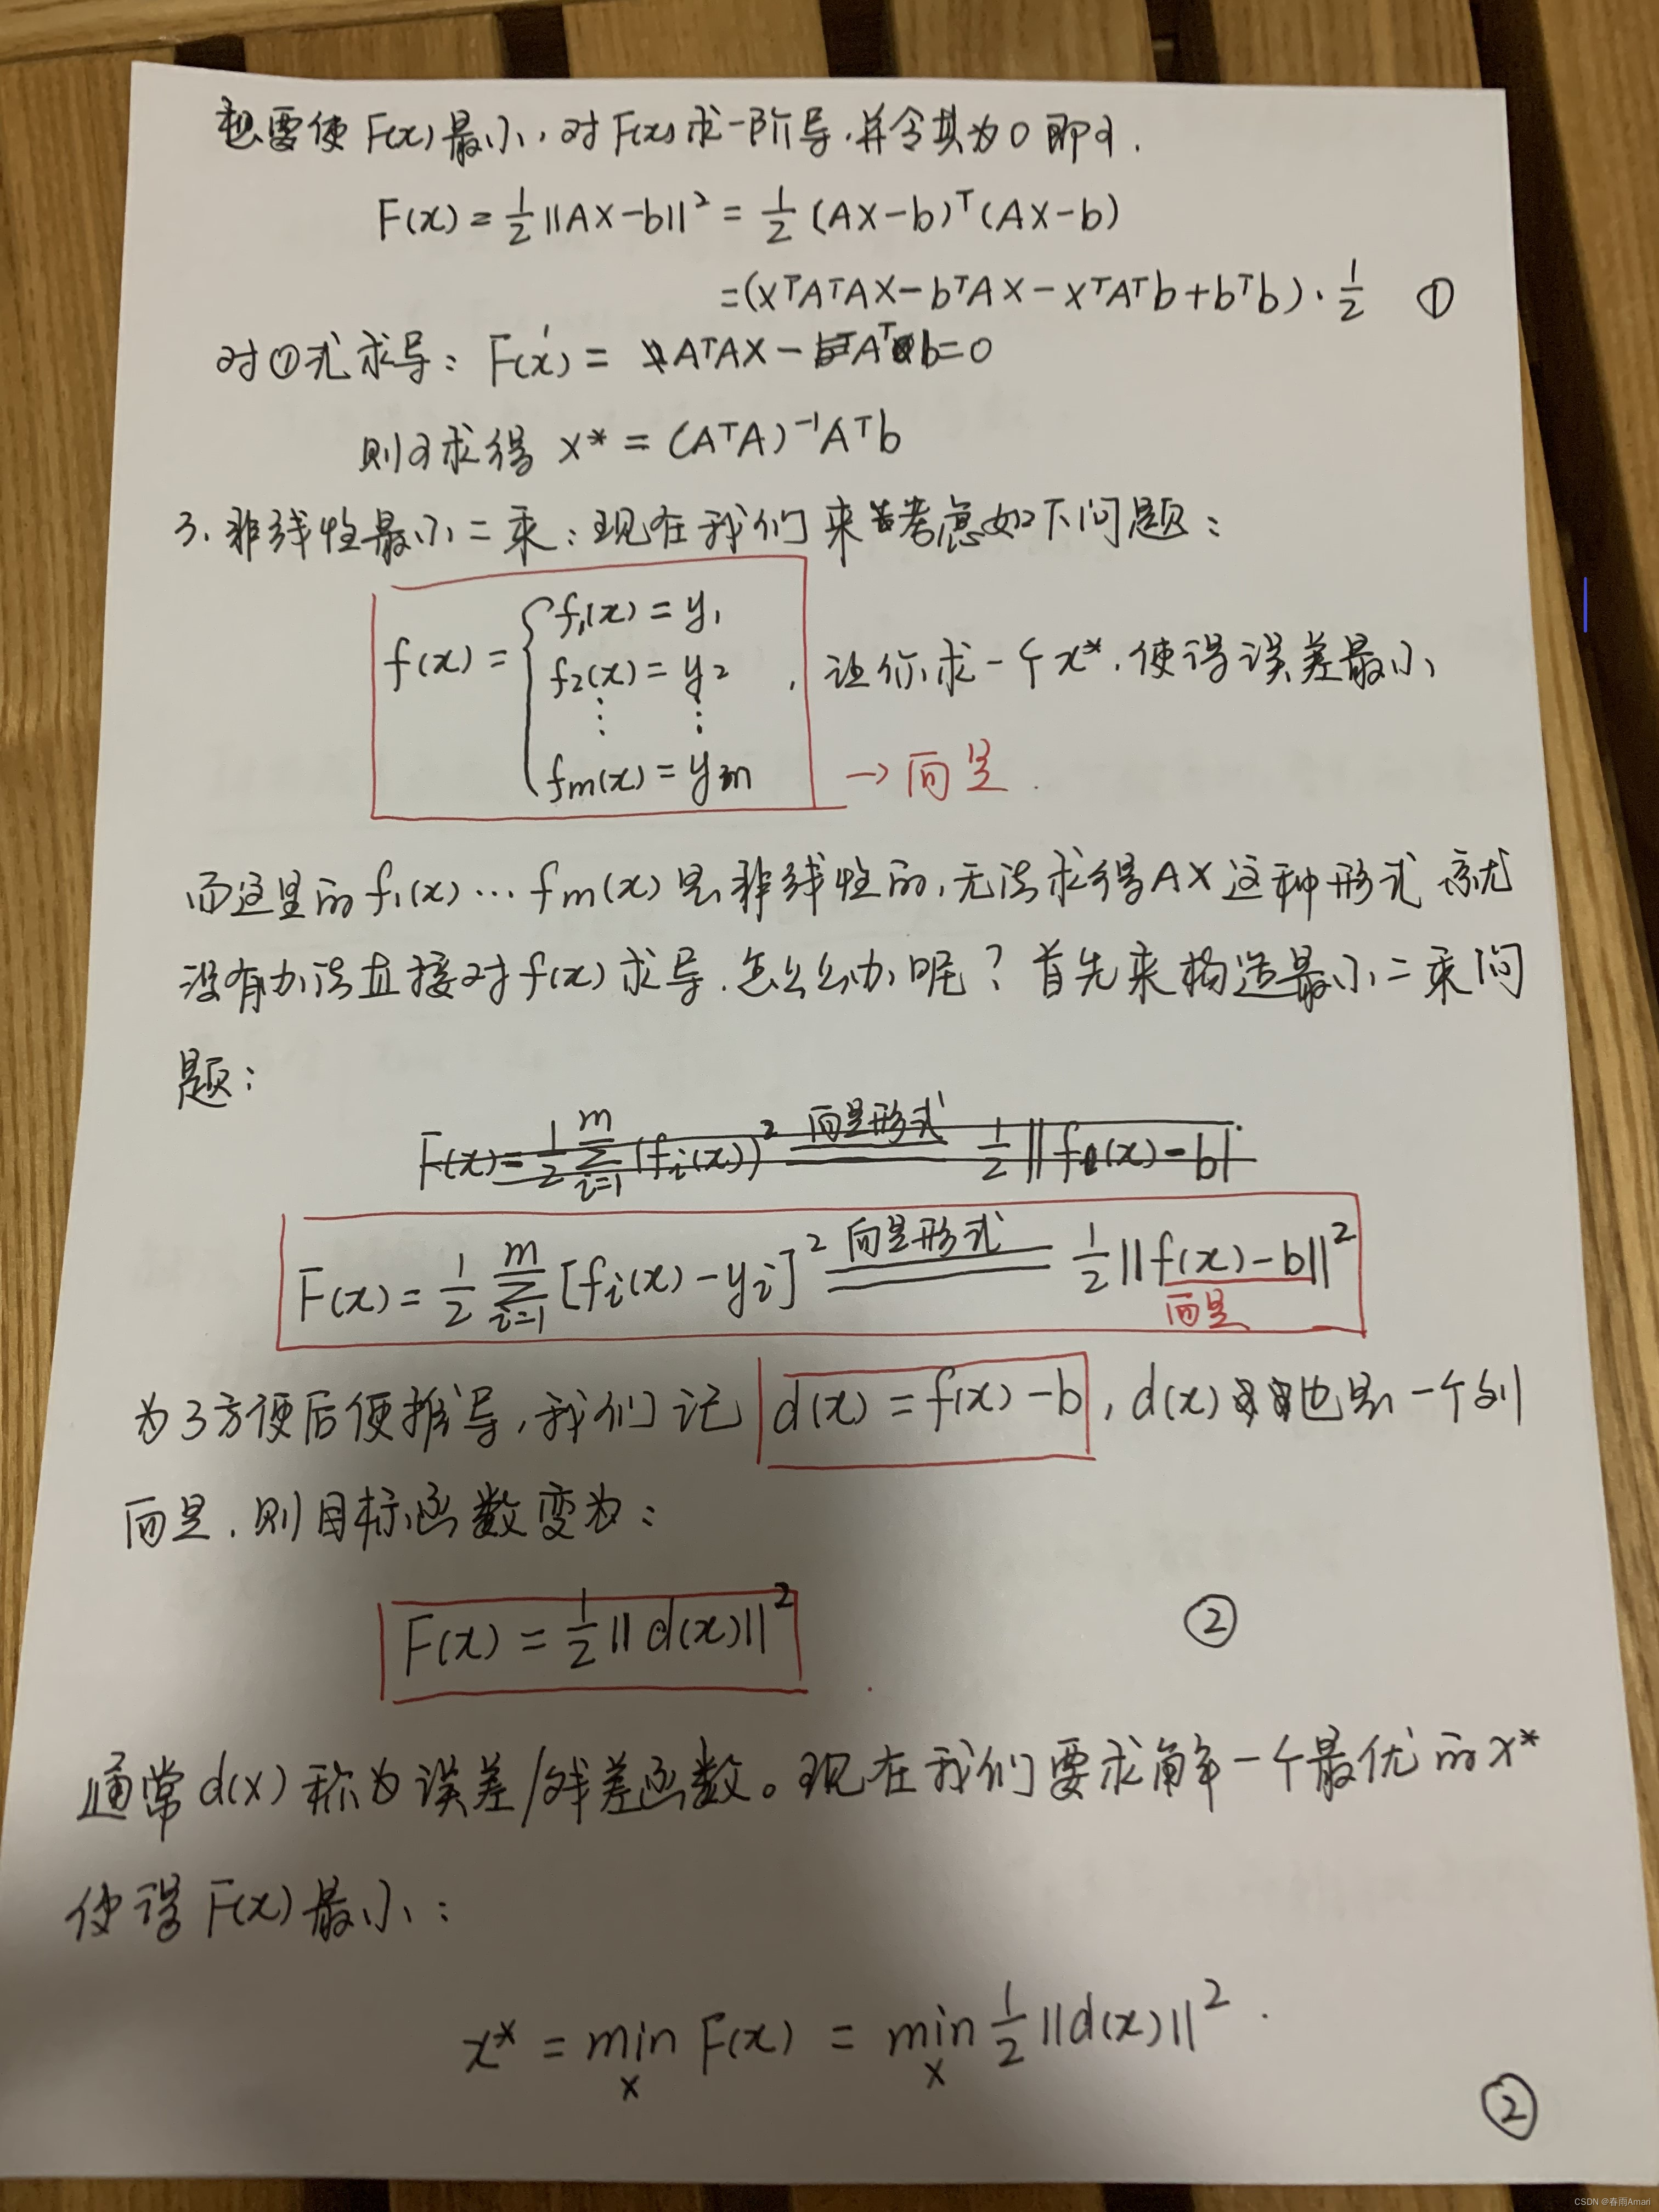 想要使 F(x) 最小, 对 F(x) 求一阶导, 并令其为0即可.
F(x) = 1/2 ||AX-b||² = 1/2 (AX-b)ᵀ(AX-b)
=(XᵀAᵀAX - bᵀAX - XᵀAᵀb + bᵀb)·1/2 ①
对①式求导: F(x)' = AᵀAX - Aᵀb = 0
则可求得 X* = (AᵀA)⁻¹Aᵀb
3. 非线性最小二乘: 现在我们来考虑如下问题:
f(x) = { f₁(x) = y₁
f₂(x) = y₂ , 让你求一个 x*, 使得误差最小
⋮ ⋮
fm(x) = ym → 向量.
而这里的 f₁(x) … fm(x) 是非线性的, 无法求得AX这种形式 就
没有办法直接对 f(x) 求导, 怎么办呢? 首先来构造最小二乘问
题:
F(x) = 1/2 Σᵢ₌₁ᵐ (fᵢ(x))² 向量形式 1/2 ||f(x) - b||
F(x) = 1/2 Σᵢ₌₁ᵐ [fᵢ(x) - yᵢ]² 向量形式 1/2 ||f(x) - b||²
向量
为了方便后便推导, 我们记 d(x) = f(x) - b, d(x) 也是一个列
向量, 则目标函数变为:
F(x) = 1/2 ||d(x)||² ②
通常 d(x) 称为误差/残差函数。现在我们要求解一个最优的 X*
使得 F(x) 最小:
x* = min F(x) = min 1/2 ||d(x)||².
x x
②
CSDN @春雨Aman